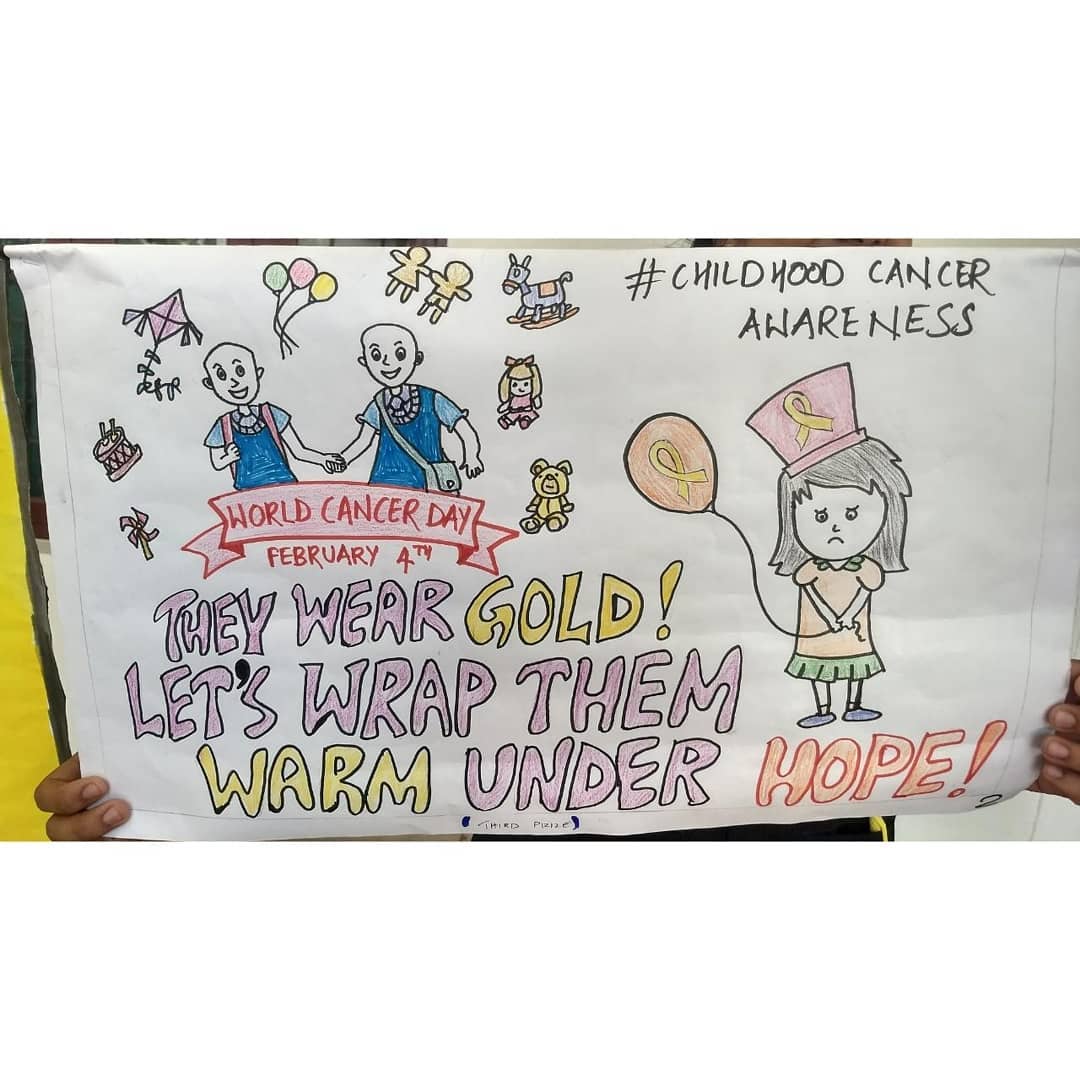 #CHILDHOOD CANCER
AWARENESS
WORLD CANCER DAY
FEBRUARY 4TH
THEY WEAR GOLD!
LET'S WRAP THEM
WARM UNDER HOPE!
(THIRD PRIZE)